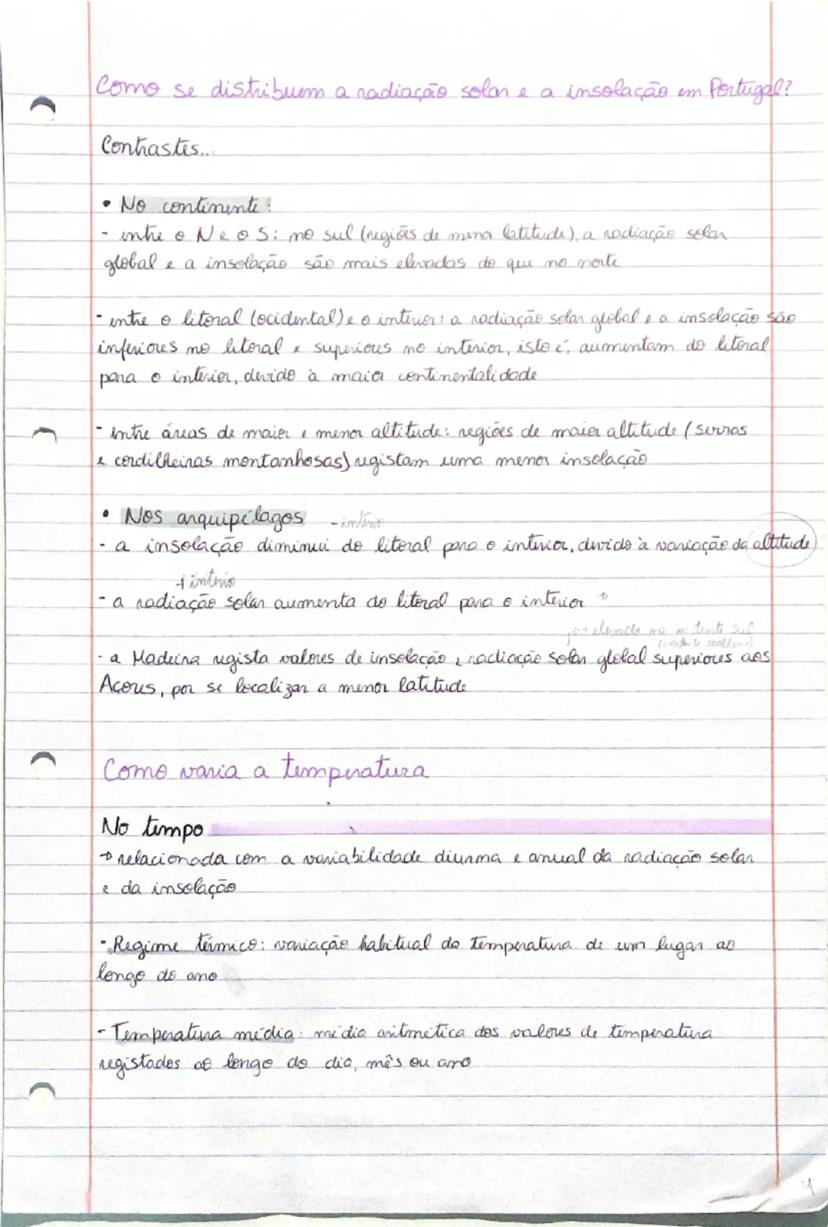 Como se distribuem a radiação solar e a insolação em Portugal?
Contrastes...
• No continente:
- entre o N e o S: no sul (regiões de menor latitude), a radiação solar
global e a insolação são mais elevadas do que no norte
- entre o litoral (ocidental) e o interior: a radiação solar global e a insolação são
inferiores no litoral e superiores no interior, isto é, aumentam do litoral
para o interior, devido à maior continentalidade
- entre áreas de maior e menor altitude: regiões de maior altitude (serras
e cordilheiras montanhosas) registam uma menor insolação
• Nos arquipélagos
- a insolação diminui do litoral para o interior, devido à variação da altitude
+ interio
- a radiação solar aumenta do litoral para o interior
+ elevado na sul
- a Madeira regista valores de insolação e radiação solar global superiores aos
Açores, por se localizar a menor latitude
Como varia a temperatura
No tempo
→ relacionada com a variabilidade diurna e anual da radiação solar
e da insolação
- Regime térmico: variação habitual da temperatura de um lugar ao
longo do ano
- Temperatura média: média aritmética dos valores de temperatura
registados ao longo do dia, mês ou ano
4